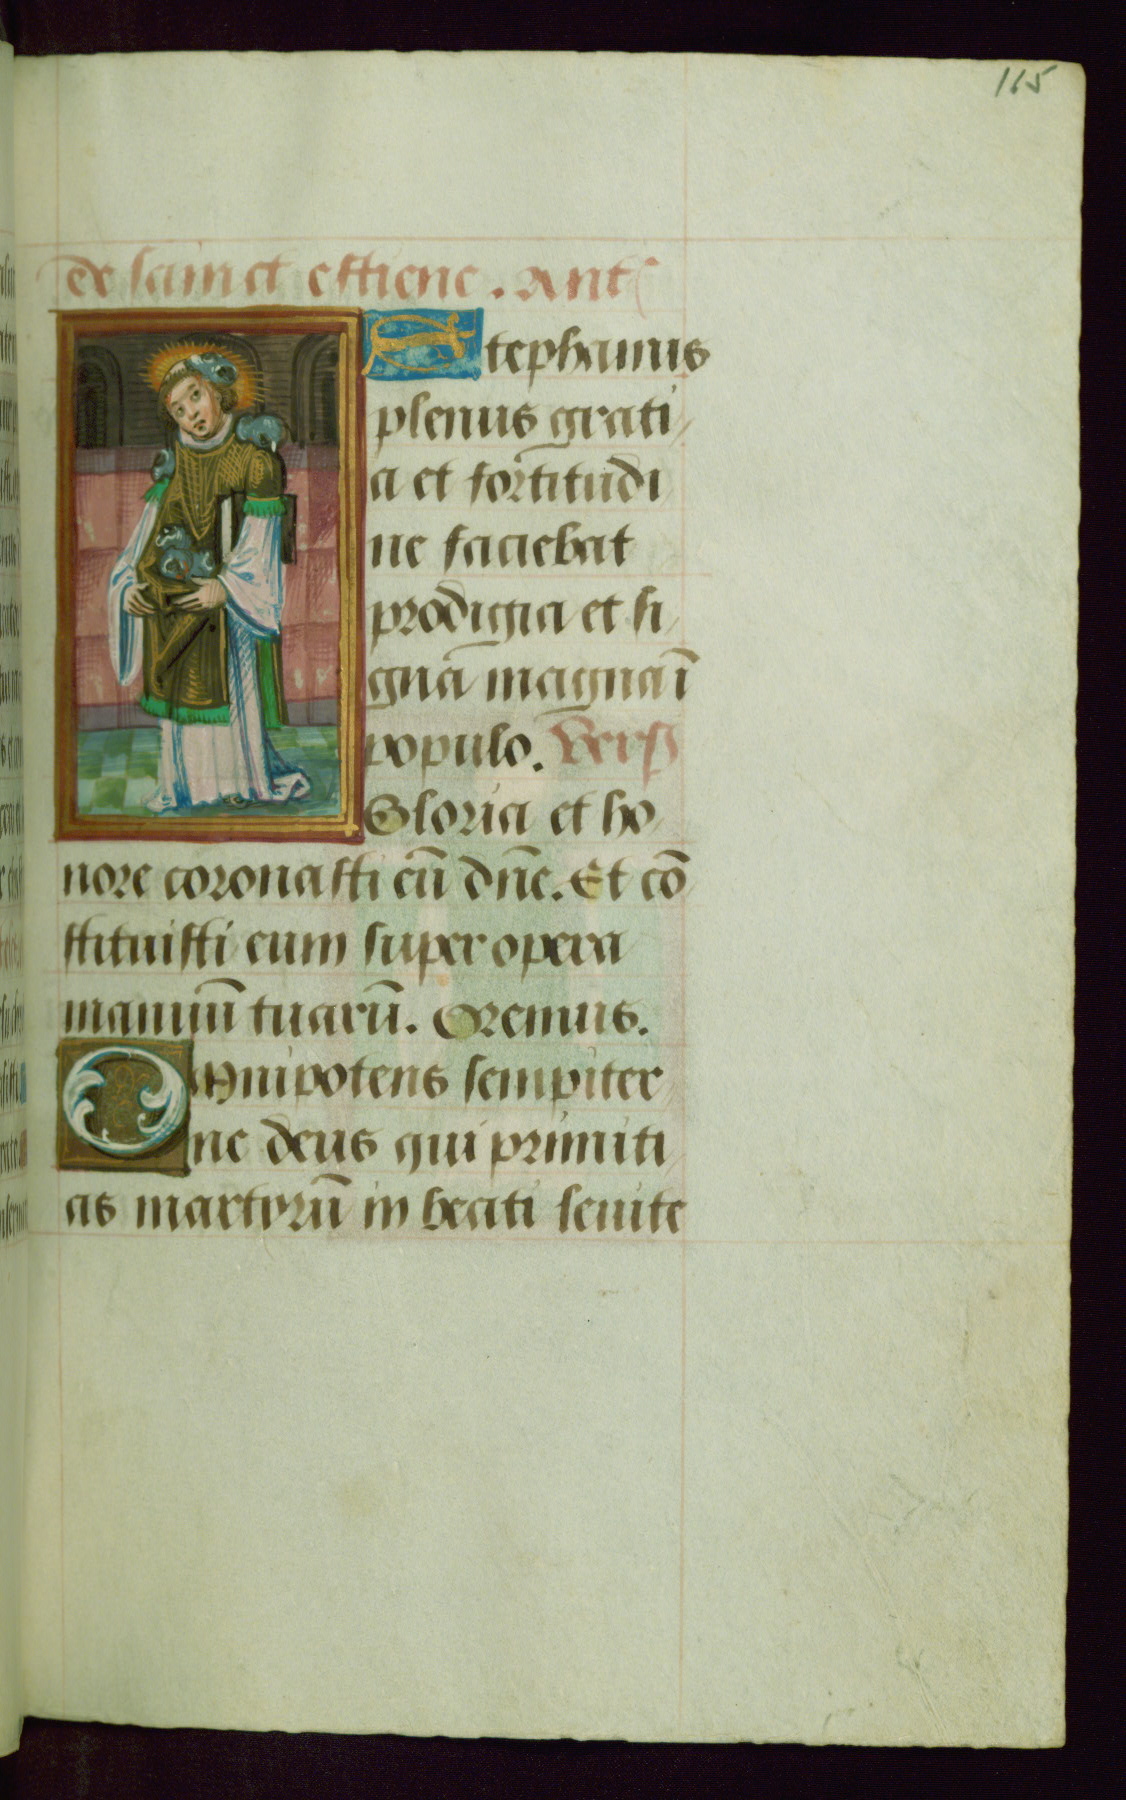 165
de sainct estiene. Ant
Stephanus
plenus grati
a et fortitudi
ne faciebat
prodigia et si
gna magna ī
populo. Vers
Gloria et ho
nore coronasti eū dn̄e. Et cō
stituisti eum super opera
manuū tuarū. Oremus.
Omnipotens sempiter
ne deus qui primiti
as martyrū in beati leuite